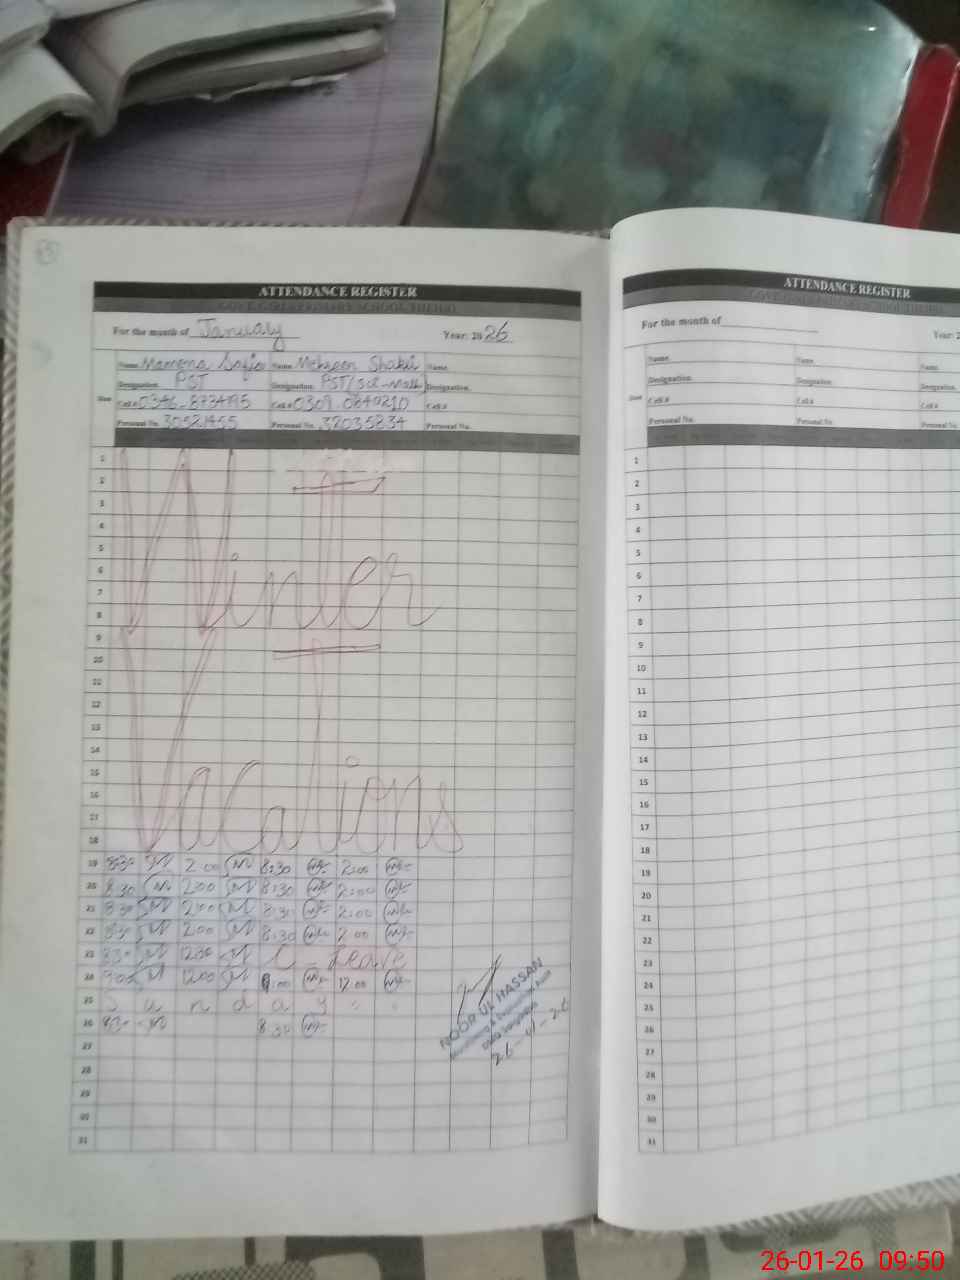 ATTENDANCE REGISTER
For the month of January Year: 2026
Name Mamona Safia Name Mehreen Shakil Name
Designation PST Designation. PST(Sci-Math) Designation.
Cell # 0346-8734195 Cell # 0309-0840210 Cell #
Personal No. 30521455 Personal No. 32035834 Personal No.
1
2
3
4
5
6
7
8
9
10
11
12
13
14
15
16
17
18
Winter
Vacations
19 8:30 2:00 8:30 2:00
20 8:30 2:00 8:30 2:00
21 8:30 2:00 8:30 2:00
22 8:30 2:00 8:30 2:00
23 8:30 12:30 C-Leave
24 9:00 12:00 9:00 12:00
25 Sunday
26 8:30 8:30
27
28
29
30
31
NOOR UL HASSAN
26-01-26
ATTENDANCE REGISTER
For the month of Year: 2
Name Name Name
Designation. Designation. Designation.
Cell # Cell # Cell #
Personal No. Personal No. Personal No.
1
2
3
4
5
6
7
8
9
10
11
12
13
14
15
16
17
18
19
20
21
22
23
24
25
26
27
28
29
30
31
26-01-26 09:50